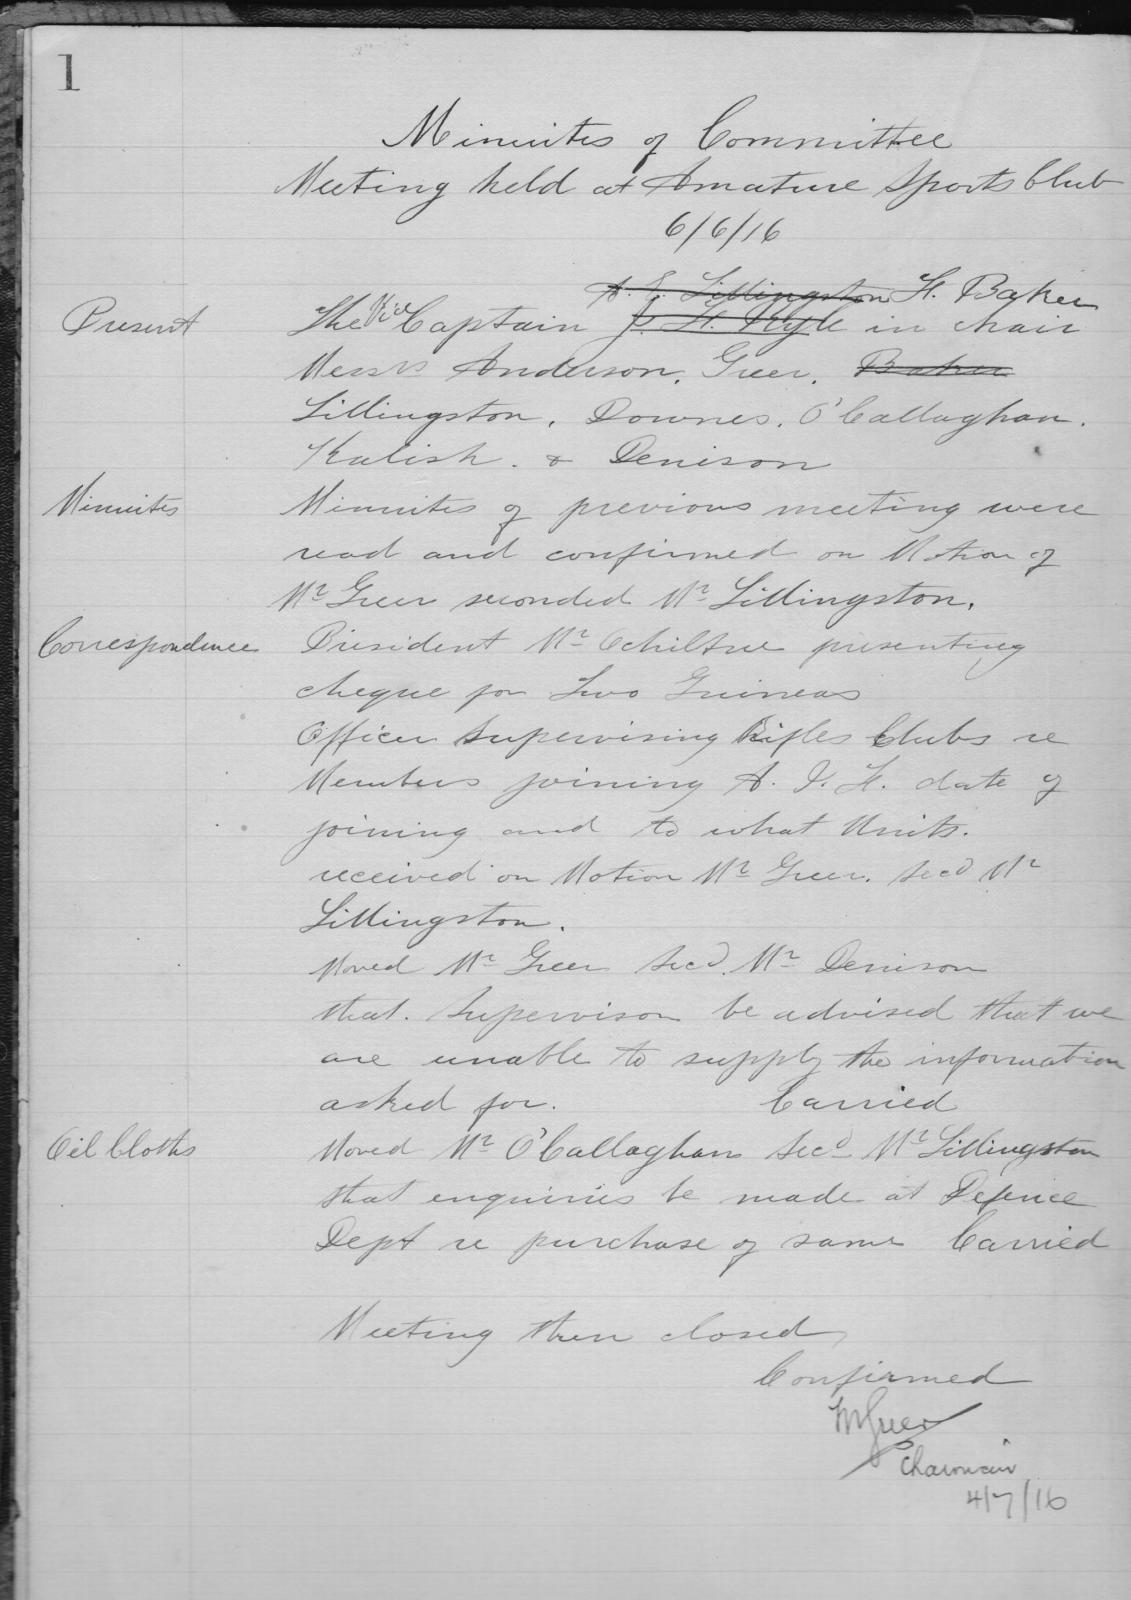 1
Minuites of Committee
Meeting held at Amature Sports Club
6/6/16
A. E. Lillingston H. Baker
Present The Vice Captain J. H. Kyle in chair
Messrs Anderson, Greer, Baker
Lillingston, Downes, O'Callaghan,
Kalish. & Denison
Minuites Minuites of previous meeting were
read and confirmed on Motion of
Mr Greer seconded Mr Lillingston.
Correspondence President Mr Ochiltree presenting
cheque for Two Guineas
Officer Supervising Rifles Clubs re
Members joining A. I. F. date of
joining and to what Units.
received on Motion Mr Greer. Secd Mr
Lillingston.
Moved Mr Greer Secd. Mr Denison
that. Supervison be advised that we
are unable to supply the information
asked for. Carried
Oil Cloths Moved Mr O'Callaghan Secd Mr Lillingston
that enquiries be made at Defence
Dept re purchase of same Carried
Meeting then closed
Confirmed
Greer
Chairman
4/7/16